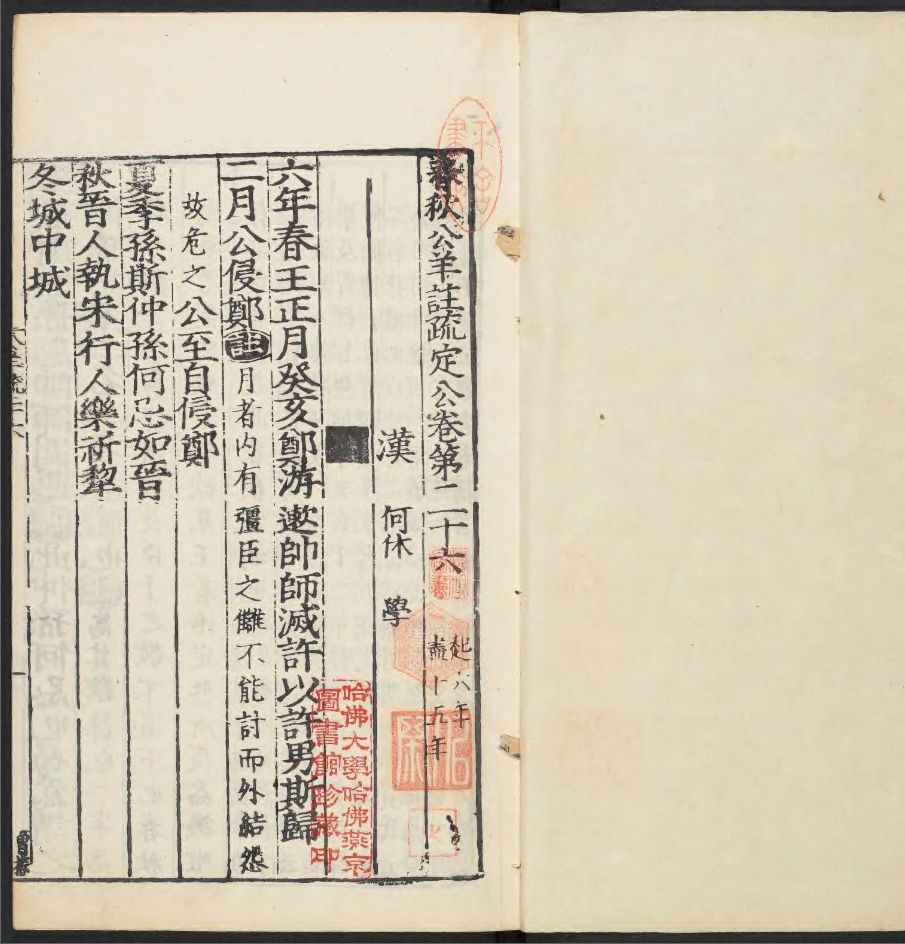 春秋公羊註疏定公卷第二十六 起六年
盡十五年
漢 何休 學
六年春王正月癸亥鄭游遬帥師滅許以許男斯歸
二月公侵鄭註月者內有彊臣之讎不能討而外結怨
故危之公至自侵鄭
夏季孫斯仲孫何忌如晉
秋晉人執宋行人樂祁犂
冬城中城
哈佛大學哈佛燕京
圖書館珍藏印